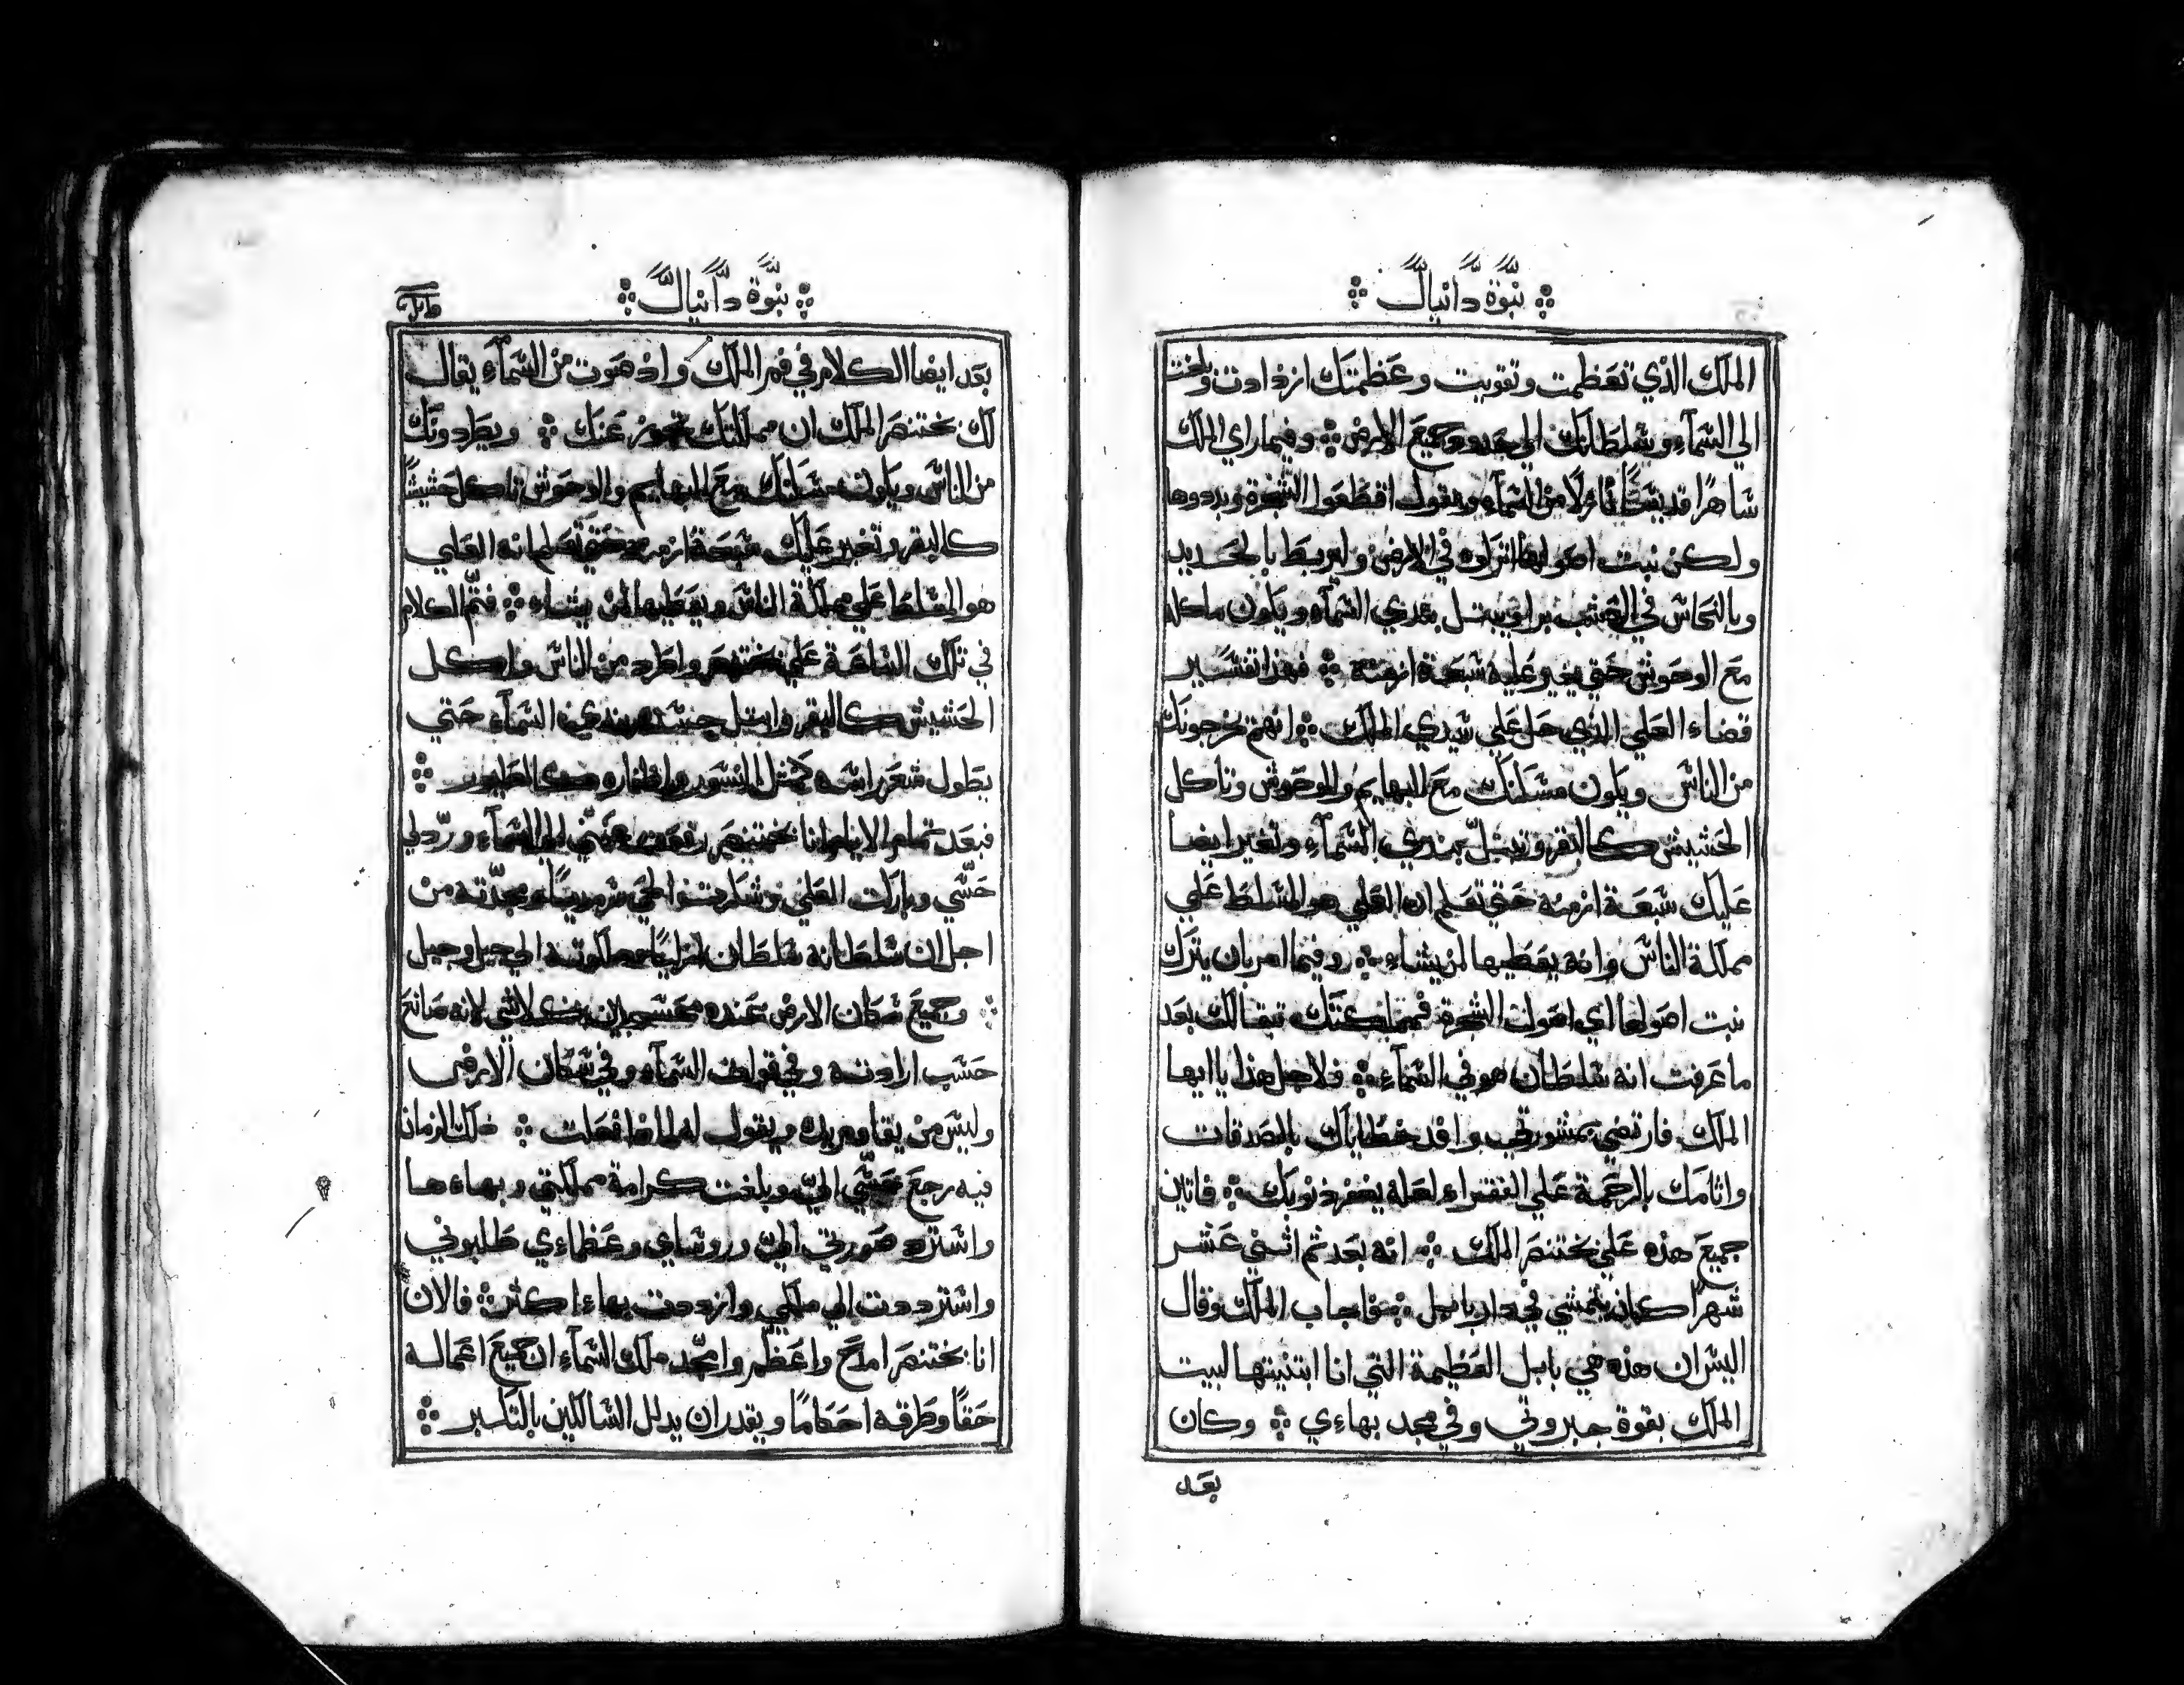 نبوة دانيال
الملك الذي تعظمت وتقويت وعظمتك ازدادت وبلغت
الي السماء وسلطانك الي حدود جميع الارض وفيما راي الملك
ساهرًا قديسًا نازلًا من السماء ويقول اقطعوا الشجرة وبددوها
ولكن نبت اصولها اتركوه في الارض وليربط بالحديد
وبالنحاس في العشب برا ويبتل بندي السماء ويكون ماكله
مع الوحوش حتي يغير عليه سبعة ازمنة فهذا تفسير
قضاء العلي الذي حل علي سيدي الملك انهم يخرجونك
من الناس ويكون مسكنك مع البهايم والوحوش وتاكل
الحشيش كالبقر وتبتل بندي السماء وتغير ايضا
عليك سبعة ازمنة حتي تعلم ان العلي هو المسلط علي
مملكة الناس وانه يعطيها لمن يشاء وفيما امر بان يترك
نبت اصولها اي اصول الشجرة فمملكتك تبقا لك بعد
ما عرفت انه سلطان هو في السماء فلاجل هذا يا ايها
الملك فارتضي بمشورتي وافد خطاياك بالصدقات
واثامك بالرحمة علي الفقراء لعله يغفر ذنوبك فاتين
جميع هذه علي بختنصر الملك انه بعد تم اثني عشر
شهرًا كان يتمشي في دار بابل فاجاب الملك وقال
اليس ان هذه هي بابل العظيمة التي انا ابتنيتها لبيت
الملك بقوة جبروتي وفي مجد بهاءي وكان
بعد
نبوة دانيال
بعد ايضا الكلام في فم الملك واذ هوت من السماء يقال
لك بختنصر الملك ان مملكتك تجوز عنك ويطردونك
من الناس ويكون مسكنك مع البهايم والوحوش تاكل حشيشًا
كالبقر وتغير عليك سبعة ازمنة حتي تعلم انه العلي
هو المسلط علي مملكة الناس ويعطيها لمن يشاء فتم الكلام
في تلك الساعة علي بختنصر واطرد من الناس واكل
الحشيش كالبقر وابتل جسده بندي السماء حتي
يطول شعر راسه كمثل النسور واظفاره كالطيور
فبعد تمام الايام انا بختنصر رفعت عيني الي السماء وردلي
حسي وباركت العلي وشكرت الحي سرمديًا ومجدته من
اجل ان سلطانه سلطان ازليًا وملكوته الي جيل وجيل
وجميع سكان الارض عنده محسوبين كلاشي لانه صانع
حسب ارادته وفي قوات السماء وفي سكان الارض
وليس من يقاوم يده ويقول له لماذا فعلت ذلك الزمان
فيه رجع حسي الي وبلغت كرامة مملكتي وبهاءها
واسترد صورتي الي وروساي وعظماءي طلبوني
واسترددت الي ملكي وازددت بهاء اكثر فالان
انا بختنصر امدح واعظم وامجد ملك السماء ان جميع اعماله
حقًا وطرقه احكامًا ويقدر ان يدلل السالكين بالتكبر